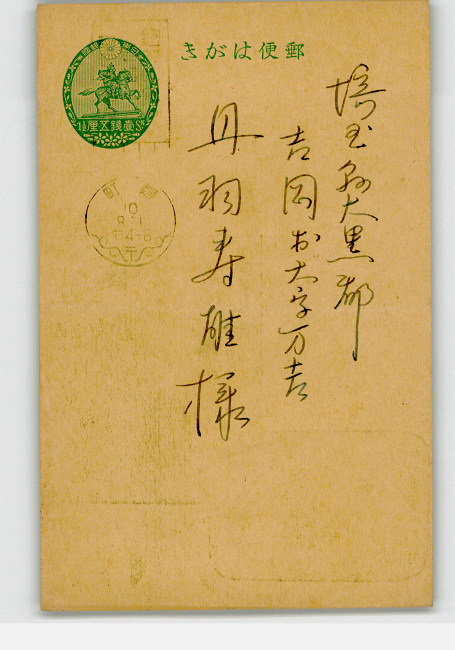 郵便はがき
埼玉県大里郡
吉岡村大字万吉
丹羽寿雄様
壹錢五厘
10
8.1
4-8